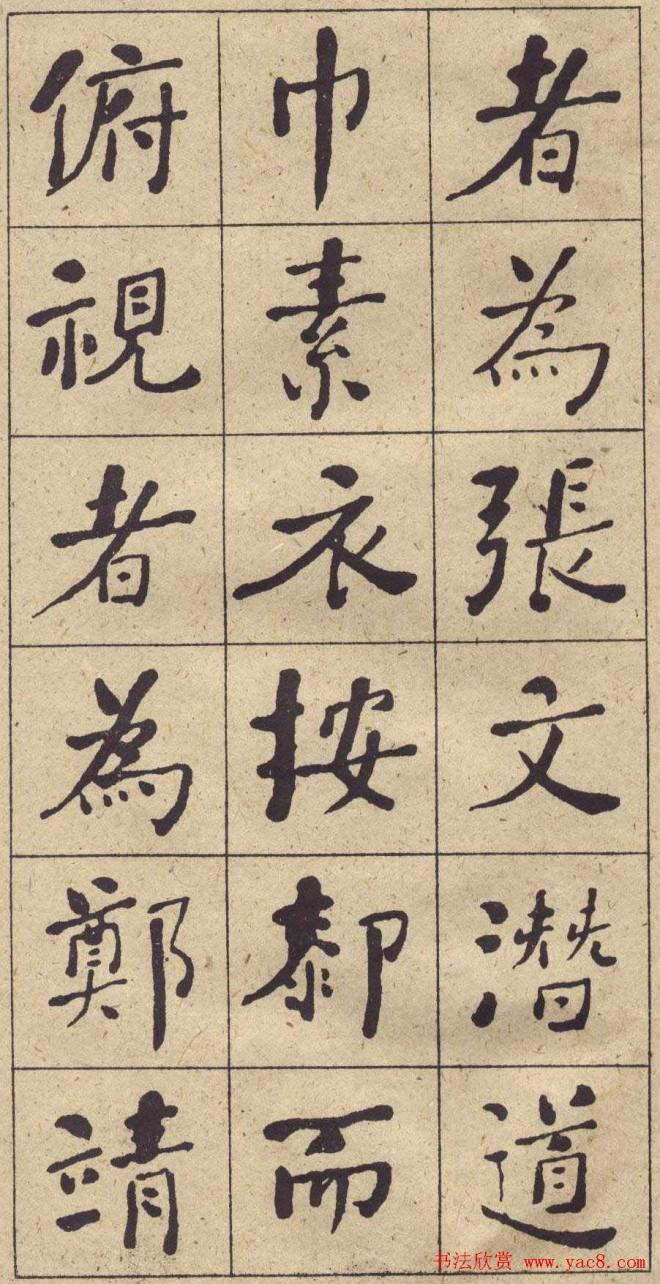 者為張文潛道
巾素衣按厀而
俯視者為鄭靖
书法欣赏 www.yac8.com